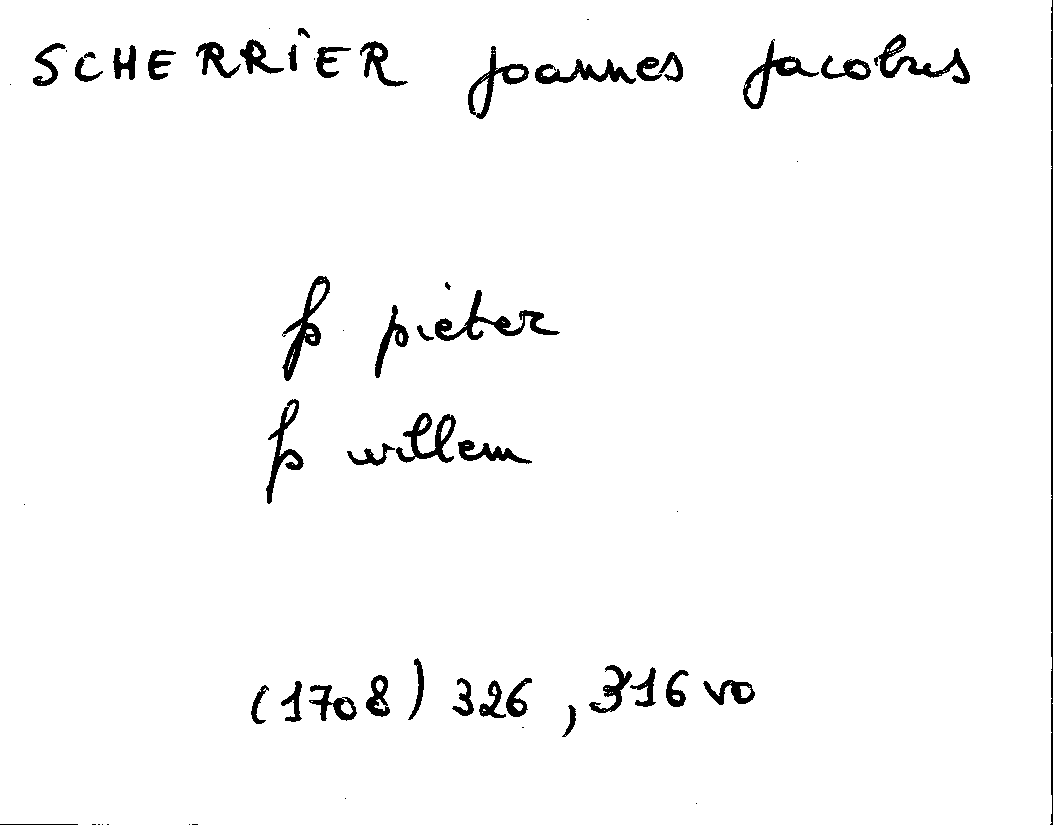 SCHERRIER Joannes Jacobus
fs pieter
fs willem
(1708) 326, 316 vo